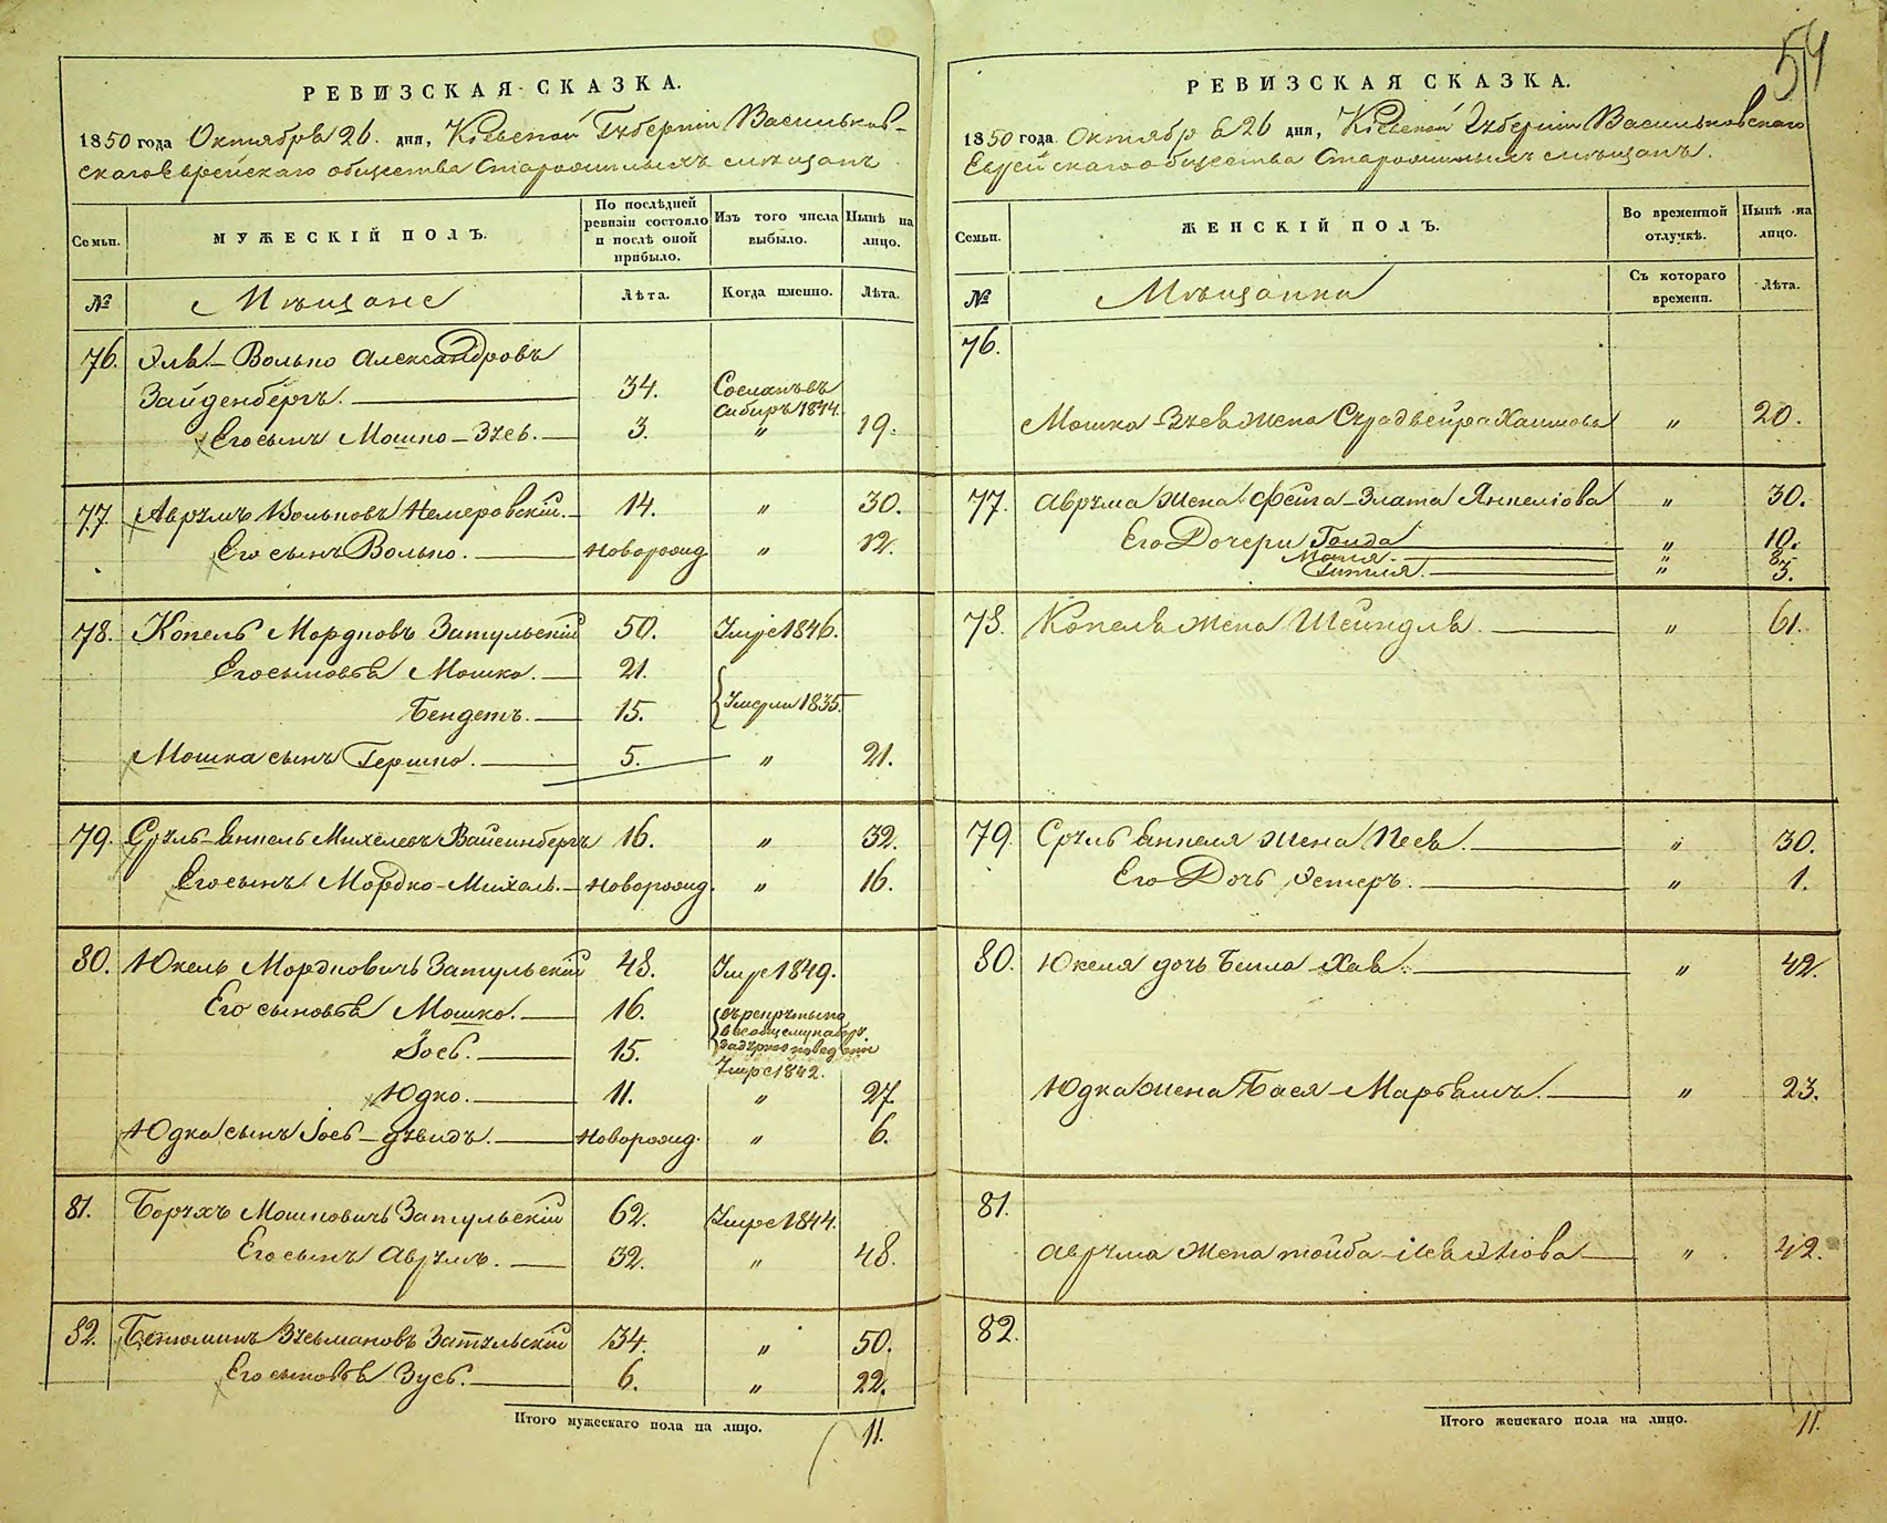 54
РЕВИЗСКАЯ СКАЗКА.
1850 года Октября 26. дня, Кіевской Губерніи Васильков-
скаго Еврейскаго общества Старожилыхъ мѣщанъ
Семьи.
МУЖЕСКІЙ ПОЛЪ.
По послѣдней ревизіи состояло и послѣ оной прибыло.
Изъ того числа выбыло.
Нынѣ на лицо.
№
Мѣщане
Лѣта.
Когда именно.
Лѣта.
76. Эля-Волько Александровъ
Зайденбергъ. 34. Сосланъ въ Сибирь 1844.
Его сынъ Мошко-Зуев. 3. " 19.
77. Аврумъ Вольковъ Немеровскій. 14. " 30.
Его сынъ Волько. новорожд " 12.
78. Копель Мордковъ Затульскій 50. Умре 1846.
Его сыновья Мошко. 21.
Бендетъ. 15. Умерли 1835.
Мошка сынъ Гершко. 5. " 21.
79. Сруль-Янкель Михелевъ Вайсинбергъ 16. " 32.
Его сынъ Мордко-Михаль. новорожд. " 16.
80. Юкель Мордковичъ Затульскій 48. Умре 1849.
Его сыновья Мошко. 16.
Іось. 15.
Умре 1842.
Юдко. 11. " 27.
Юдка сынъ Іось-Дувидъ. новорожд. " 6.
81. Борухъ Мошковичъ Затульскій 62. Умре 1844.
Его сынъ Аврумъ. 32. " 48.
82. Бенюминъ Зусьмановъ Затульскій 34. " 50.
Его сыновья Зусь. 6. " 22.
Итого мужескаго пола на лицо. 11.
РЕВИЗСКАЯ СКАЗКА.
1850 года Октября 26 дня, Кіевской Губерніи Васильковскаго
Еврейскаго общества Старожилыхъ мѣщанъ.
Семьи.
ЖЕНСКІЙ ПОЛЪ.
Во временной отлучкѣ.
Нынѣ на лицо.
№
Мѣщанки
Съ котораго времени.
Лѣта.
76.
Мошка-Зуев жена Хаимова " 20.
77. Аврума жена Фейга-Злата Янкеліова " 30.
Его Дочери Гоида " 10.
Маля " 8.
Гитля. " 3.
78. Копеля жена Шейндля. " 61.
79. Сруль Янкеля жена Песя. " 30.
Его Дочь Эстеръ. " 1.
80. Юкеля дочь Бейла Хая. " 42.
Юдка жена Бася-Марьямъ. " 23.
81.
Аврума жена Тойба " 42.
82.
Итого женскаго пола на лицо. 11.